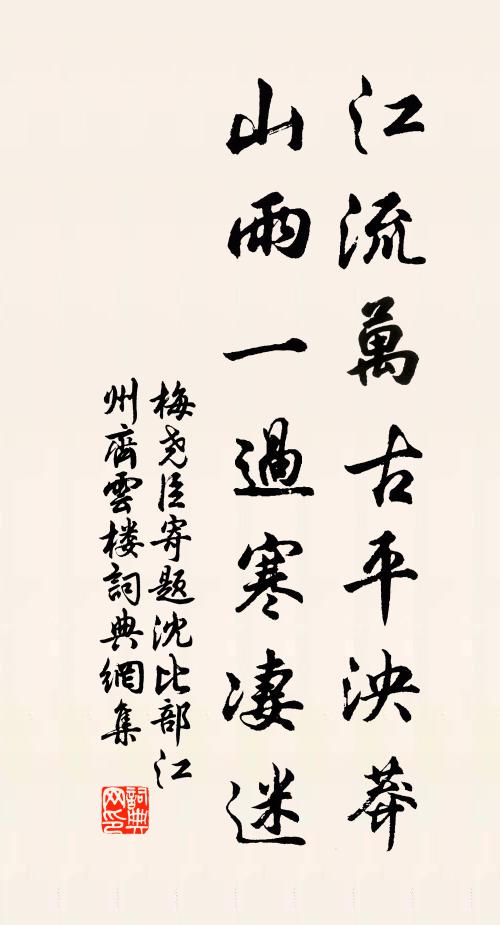 江流萬古平泱莽
山雨一過寒凄迷
梅尧臣寄题沈比部江
州齊雲楼詞典網集
詞典网印